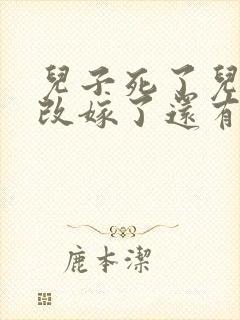 兒子死了兒
改嫁了還有
鹿本潔